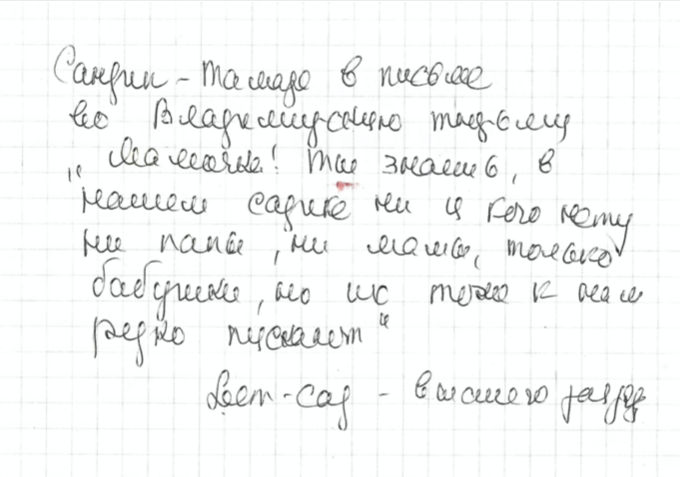 Сандик - Тамаре в письме
во Владимирскую тюрьму
„Мамочка! Ты знаешь, в
нашем садике ни у кого нету
ни папы, ни мамы, только
бабушки, но их тоже к нам
редко пускают"
Дет-сад - высшего